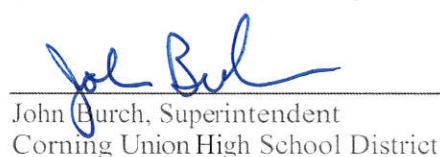 John Burch
John Burch, Superintendent
Corning Union High School District